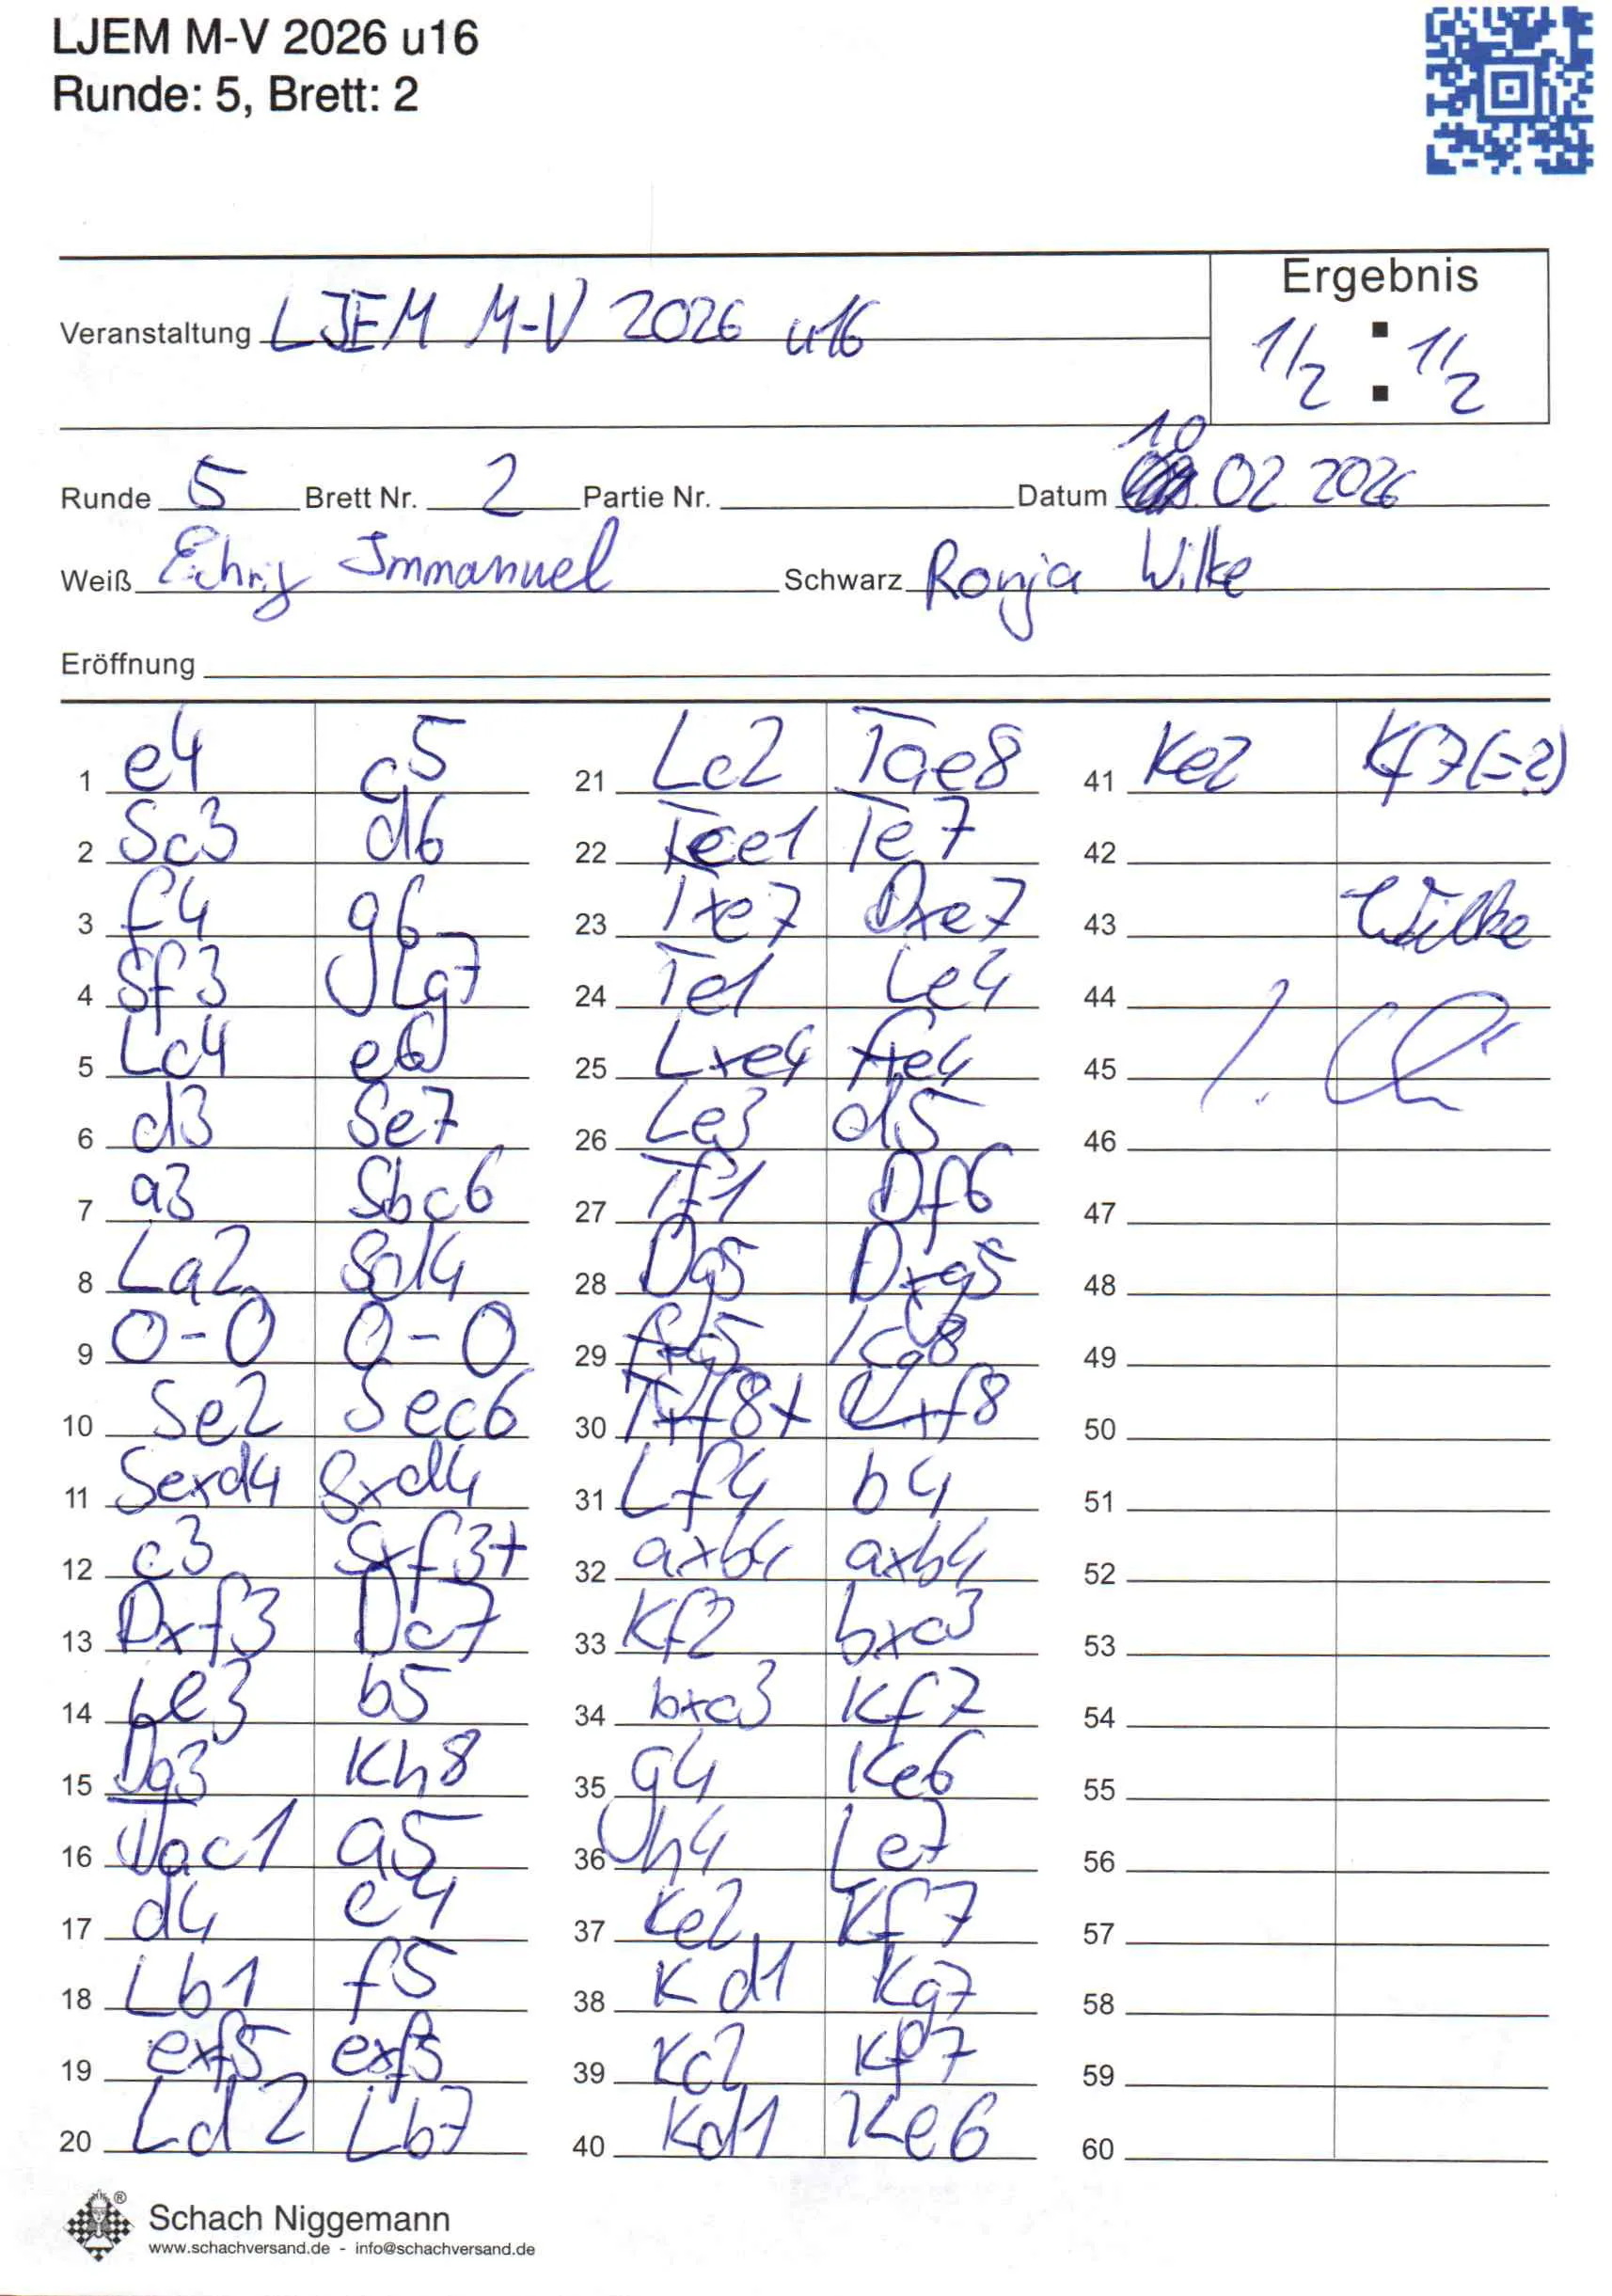 LJEM M-V 2026 u16
Runde: 5, Brett: 2
Ergebnis
Veranstaltung LJEM M-V 2026 u16
1/2 : 1/2
10
Runde 5 Brett Nr. 2 Partie Nr. Datum 02 2026
Weiß Immanuel Schwarz Ronja Wilke
Eröffnung
1 e4 c5 21 Lc2 Tae8 41 Ke2 Kf7(=?)
2 Sc3 d6 22 Tce1 Te7 42
3 f4 g6 23 Txe7 Dxe7 43 Wilke
4 Sf3 Lg7 24 Te1 Le4 44
5 Lc4 e6 25 Lxe4 fxe4 45
6 d3 Se7 26 Le3 d5 46
7 a3 Sbc6 27 Tf1 Df6 47
8 La2 Sd4 28 Dg5 Dxg5 48
9 O-O O-O 29 fxg5 Kg8 49
10 Se2 Sec6 30 Txf8+ Lxf8 50
11 Sexd4 Sxd4 31 Lf4 b4 51
12 c3 Sxf3+ 32 axb4 axb4 52
13 Dxf3 Dc7 33 Kf2 bxc3 53
14 Le3 b5 34 bxc3 Kf7 54
15 Dg3 Kh8 35 g4 Ke6 55
16 Tac1 a5 36 h4 Le7 56
17 d4 c4 37 Ke2 Kf7 57
18 Lb1 f5 38 Kd1 Kg7 58
19 exf5 exf5 39 Kc2 Kf7 59
20 Ld2 Lb7 40 Kd1 Ke6 60
Schach Niggemann
www.schachversand.de - info@schachversand.de